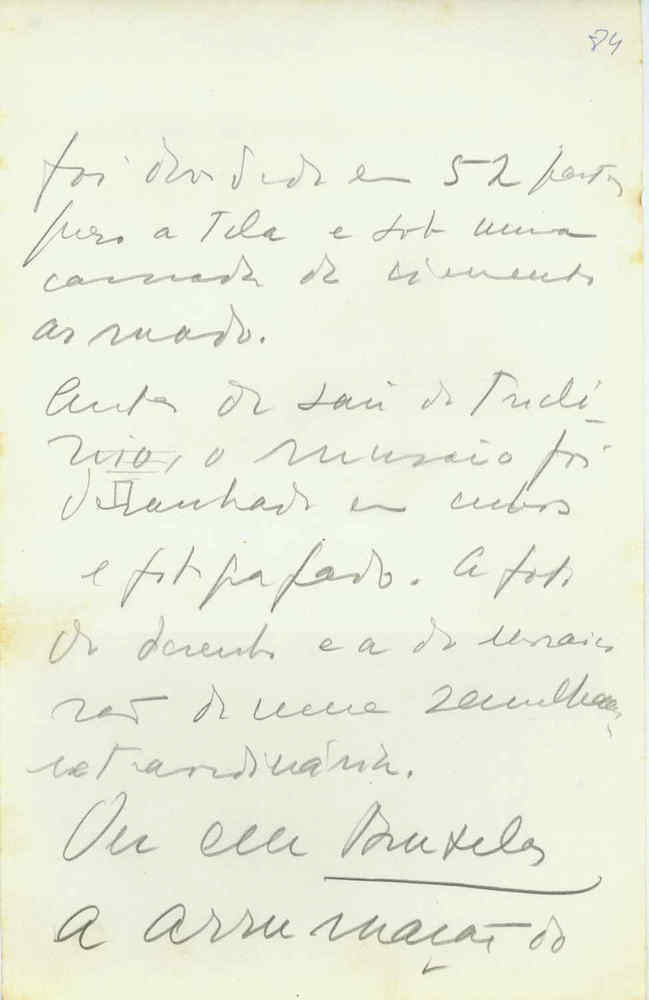 84
foi dividido em 52 partes
preso a tela e sob uma
camada de cimento
armado.
Antes de sair de Tricli-
nio, o mosaico foi
desenhado em cores
e fotografado. A foto
do desenho e a do mosaico
são de uma semelhança
extraordinária.
Vi em Bruxelas
a arrumação do